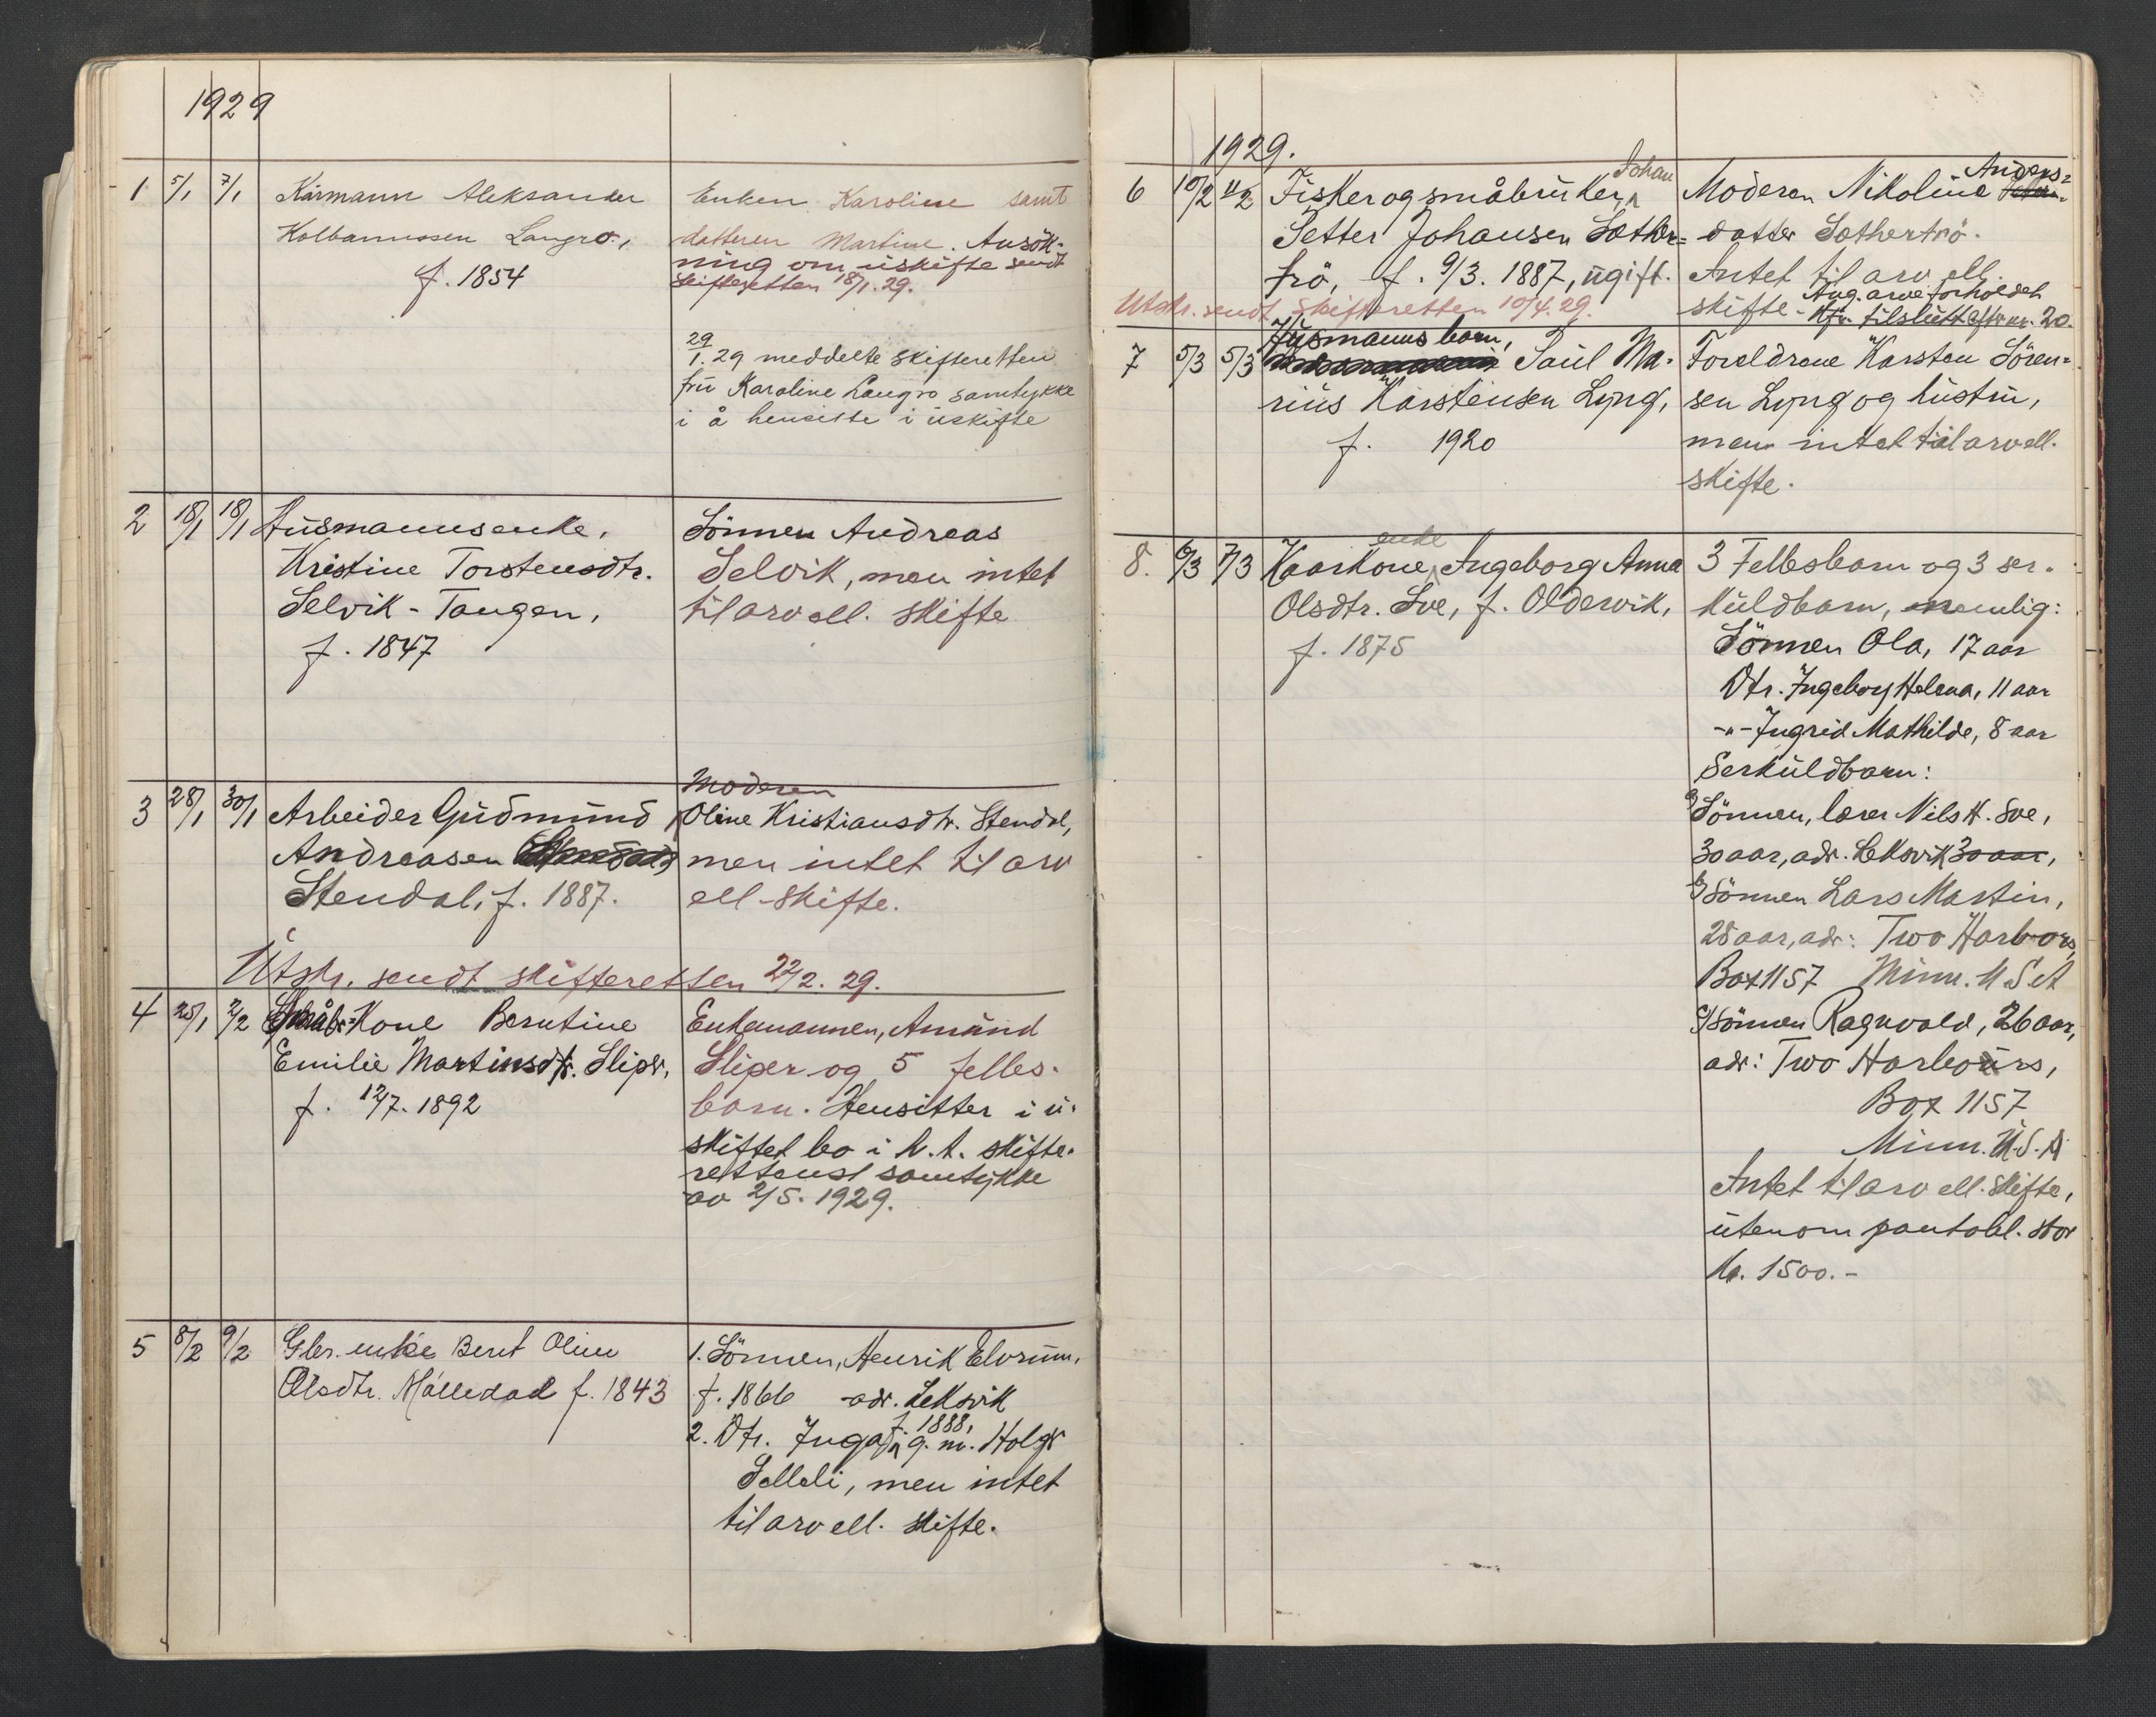 1929
1 5/1 7/1 Kårmann Aleksander
Kolbanussen Langro.,
f. 1854
Enken Karoline samt
datteren Martine. Ansök-
ning om uskifte sendt
skifteretten 18/1. 29.
29/1. 29 meddelte skifteretten
fru Karoline Langro samtykke
i å hensitte i uskifte
2 18/1 18/1 Husmannsenke,
Kristine Torstensdtr.
Selvik-Tangen,
f. 1847
Sönnen Andreas
Selvik, men intet
til arv ell. skifte
3 28/1 30/1 Arbeider Gudmund
Andreasen
Stendal, f. 1887.
Moderen
Oline Kristiansdtr. Stendal,
men intet til arv
ell. skifte.
Utskr. sendt skifteretten 22/2. 29.
4 25/1 2/2 Småbr=Kone Berntine
Emilie Martinsdtr. Sliper,
f. 12/7. 1892
Enkemannen, Amund
Sliper og 5 felles-
barn. Hensitter i u-
skiftet bo i h.t. skifte-
rettens samtykke
av 2/5. 1929.
5 8/2 9/2 Gbr. enke Berit Oline
Olsdtr. Mölledal f. 1843
1. Sönnen, Henrik Elvrum,
f. 1866 adr. Leksvik
2. Dtr. Inga, f. 1888, g. m. Holger
Selleli, men intet
til arv ell. skifte.
1929.
6 10/2 11/2 Fisker og småbruker, Johan
Petter Johansen Sæther=
trö, f. 9/3. 1887, ugift.
Utskr. sendt skifteretten 10/4. 29.
Moderen Nikoline Anders=
datter Sæthertrö.
Intet til arv ell.
skifte. Ang. arveforholdet
kfr. tilslutt efter nr. 20.
7 5/3 5/3 Husmanns barn, Paul Ma-
rius Karstensen Lyng,
f. 1920
Foreldrene Karsten Sören=
sen Lyng og hustru,
men intet til arv ell.
skifte.
8. 6/3 7/3 Kaarkone enke Ingeborg Anna
Olsdtr. Sve, f. Oldervik,
f. 1875
3 Fellesbarn og 3 sær-
kuldbarn, nemlig:
Sönnen Ola, 17 aar
Dtr. Ingeborg Helena, 11 aar
-"- Ingrid Mathilde, 8 aar
Særkuldbarn:
a/ Sönnen, lærer Nils H. Sve,
30 aar, adr. Leksvik 30 aar,
b/ Sönnen Lars Martin,
28 aar, adr: Two Harbors,
Box 1157 Minn. U S A
c/ Sönnen Ragnvald, 26 aar,
adr: Two Harbours,
Box 1157
Minn. U.S.A
Intet til arv ell. skifte,
utenom pantobl. stor
kr. 1500.-